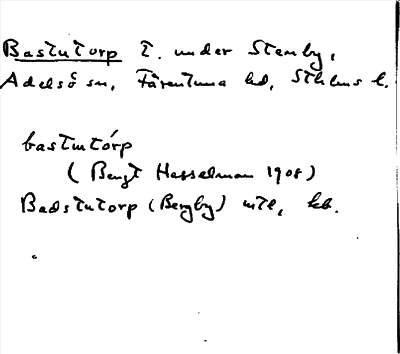 Bastutorp t. under Stenby,
Adelsö sn, Färentuna hd, Sthlms l.
bastutórp
(Bengt Hasselman 1908)
Badstutorp (Bergby) mtl, kb.